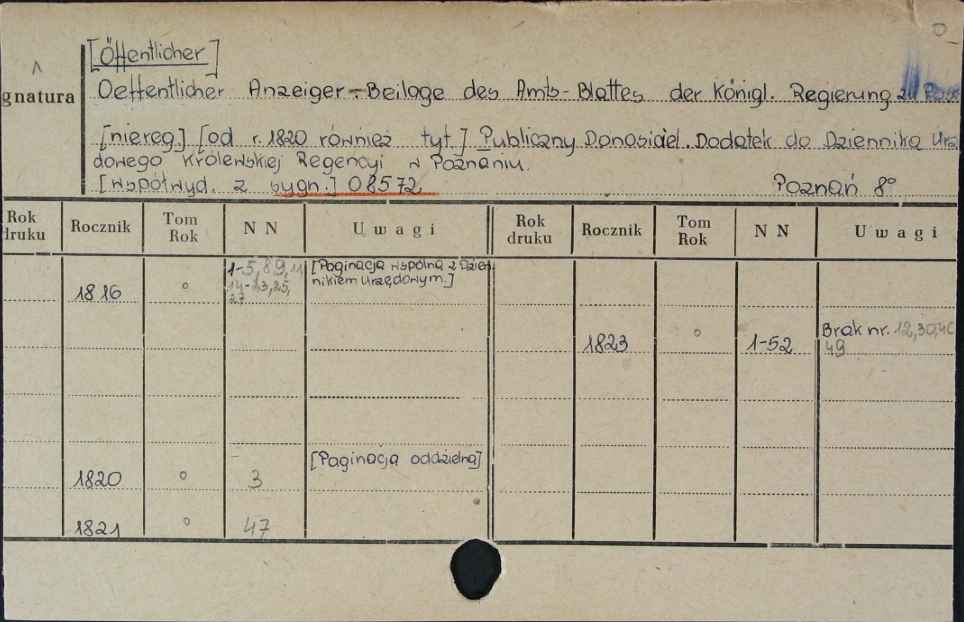 [Öffentlicher]
gnatura Oeffentlicher Anzeiger-Beilage des Amts-Blattes der Königl. Regierung zu
[niereg.] [od r. 1820 również tyt.] Publiczny Donosiciel. Dodatek do Dziennika Urzę
dowego Królewskiej Regencyi w Poznaniu.
[współwyd. z sygn.] 08572 Poznań 8°
Rok druku Rocznik Tom Rok N N Uwagi Rok druku Rocznik Tom Rok N N Uwagi
1816 ° 1-5, 8, 9, 11 [Paginacja wspólna z Dzien
nikiem Urzędowym.]
27
1823 ° 1-52 Brak nr. 12, 30, 40
49
1820 ° 3 [Paginacja oddzielna]
1821 ° 47